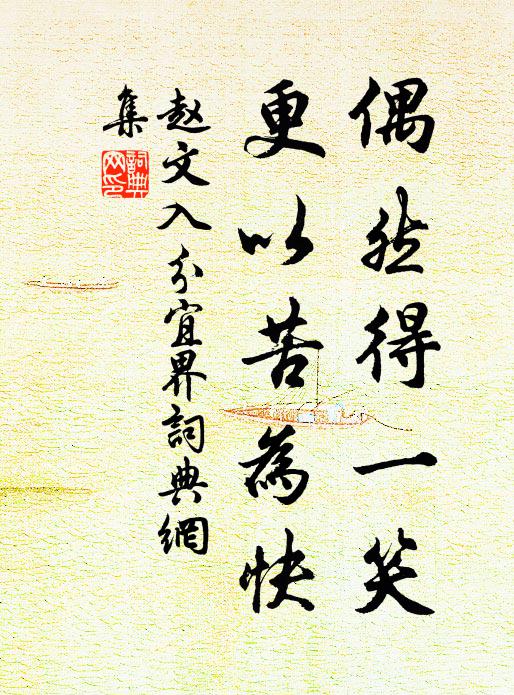 偶然得一笑
更以苦為快
赵文入分宜界詞典網
集
詞典網印